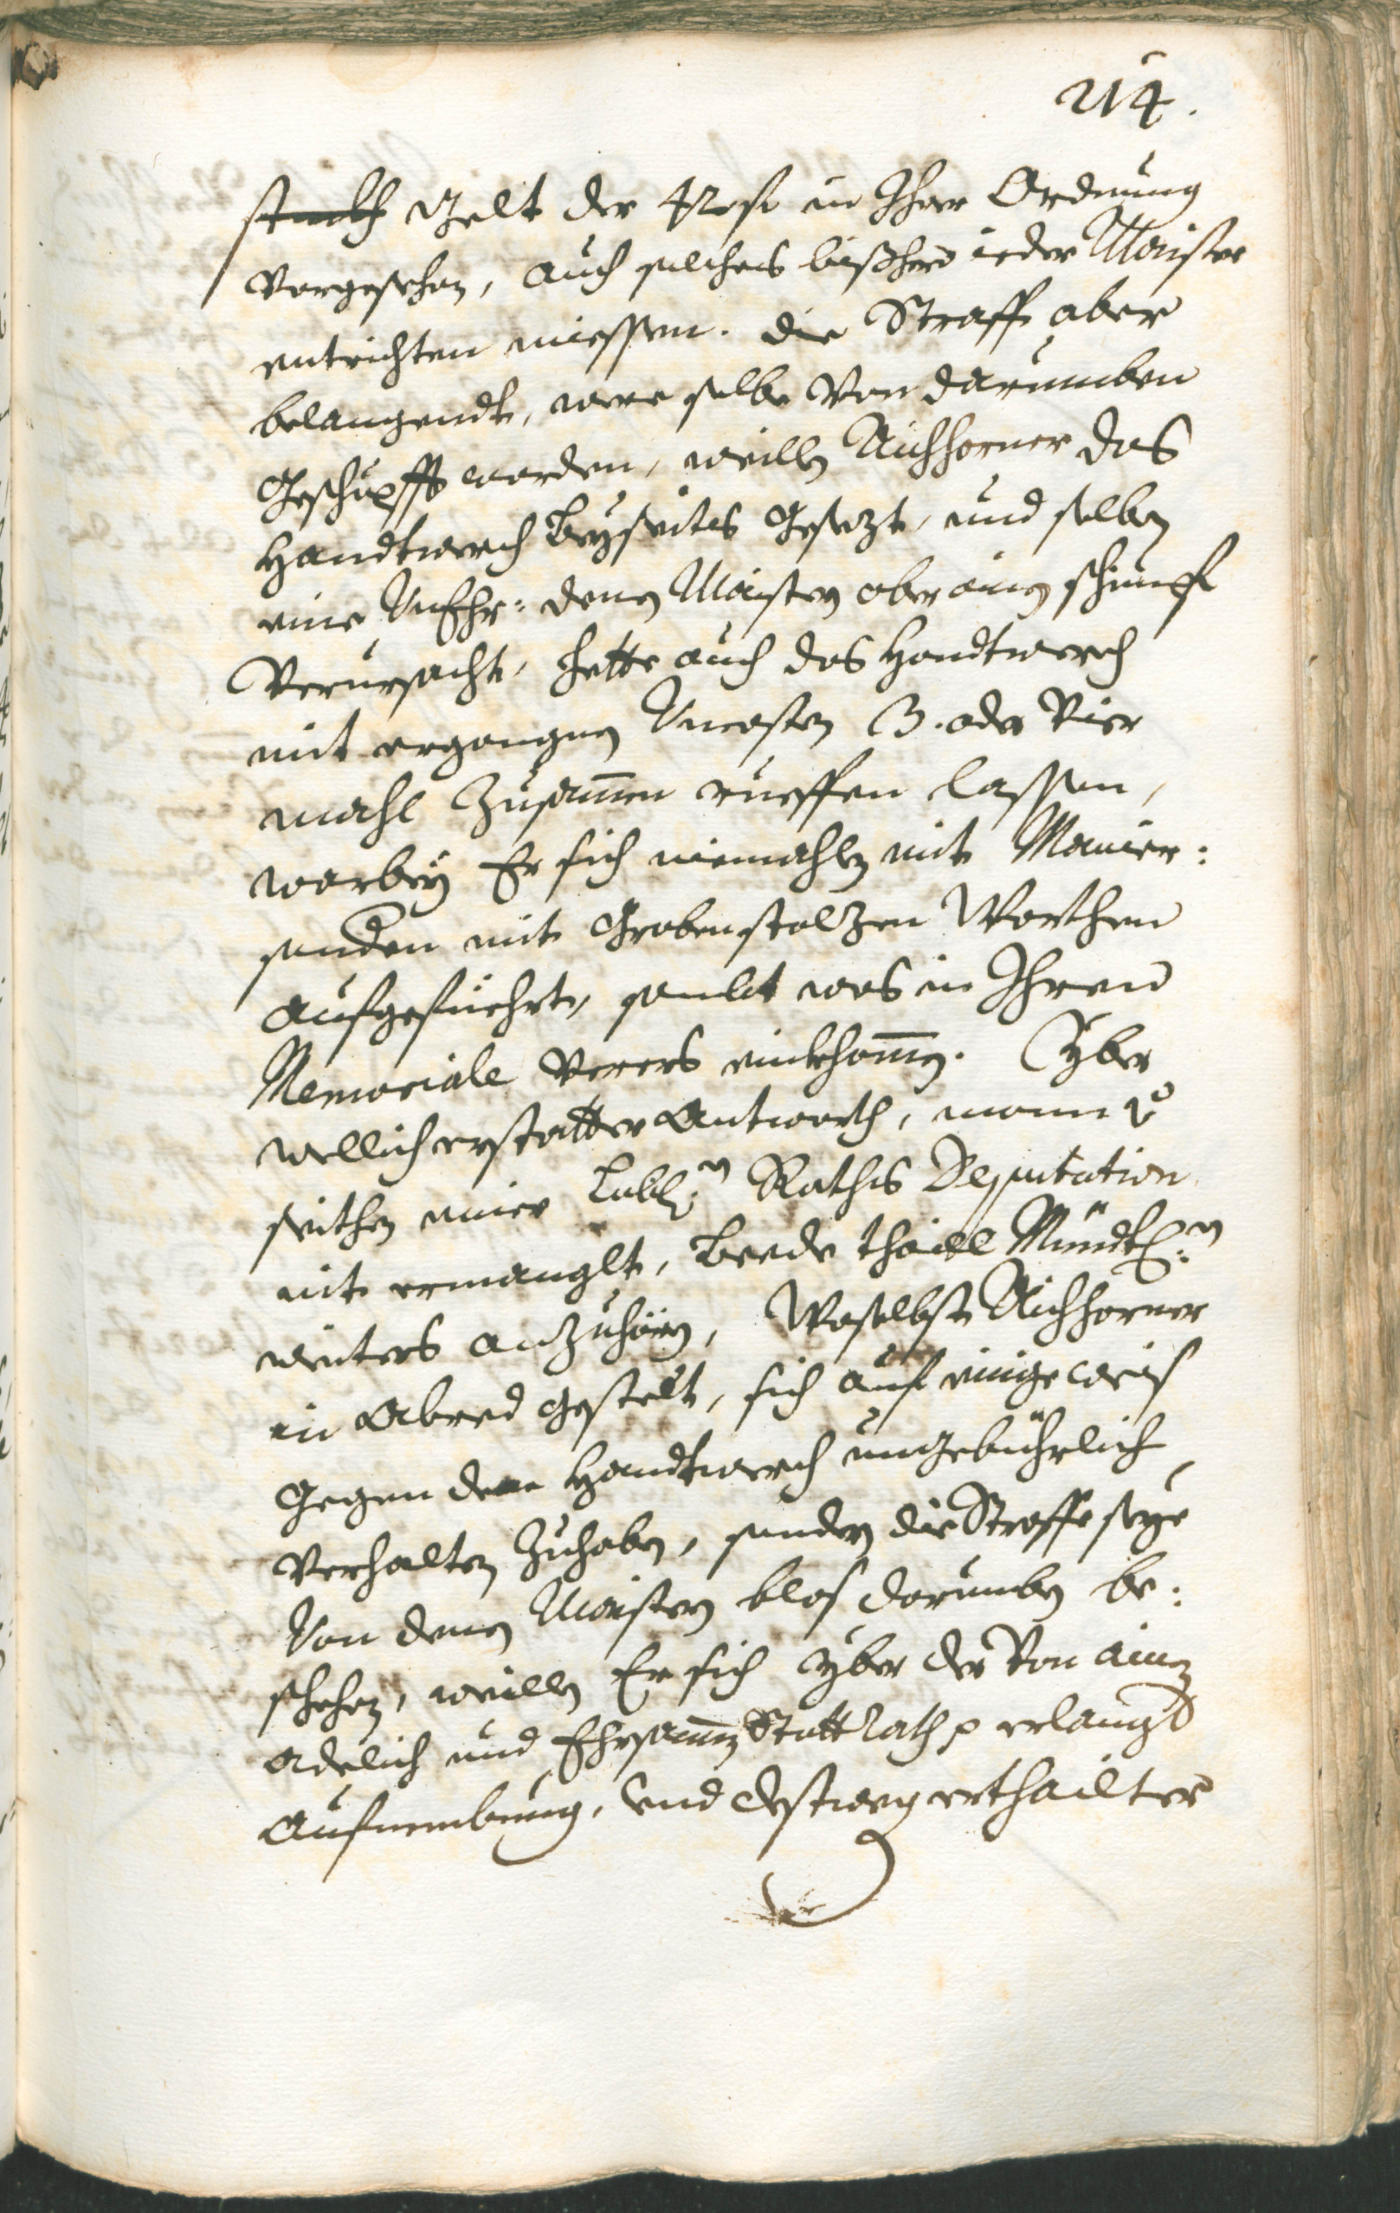 214.
Gelt der 42 fl in Ihrer Ordnung
vorgesehen, auch solches bißhero ieder Maister
entrichten miessen. die Straff aber
belangendt, were selbe von darumben
Geschöpfft worden, weillen Aichhorner das
Handtwerch beyseits Gesezt, und selben
eine UnEhr: denen Maistern aber ainen schimpf
Verursacht, hette auch das Handtwerch
mit ergangnen Uncosten 3. oder Vier
mahl Zusamen rueffen lassen,
warbey Er sich niemahlen mit Manier:
sondern mit Groben stolzen Worthen
aufgefüehrt, sambt was in Ihren
Memoriale verers einkhomen. Yber
wellich erstatter Antworth, mann
seithen einer Lobl:n Raths Deputation
nit ermanglt, beede thaill Mündtl:n
weiters anzuhörn, Woselbst Aichhorner
in Abred gestelt, sich auf einige weis
Gegen dem Handtwerch ungebührlich
Verhalten Zuhaben, sondern die Straffe seye
Von denen Maistern blos darumben be:
schehen, weillen Er sich yber der Von ainem
Adelich und Ehrsamen Statt Rath erlangt
Aufnembung, und destweg erthailter